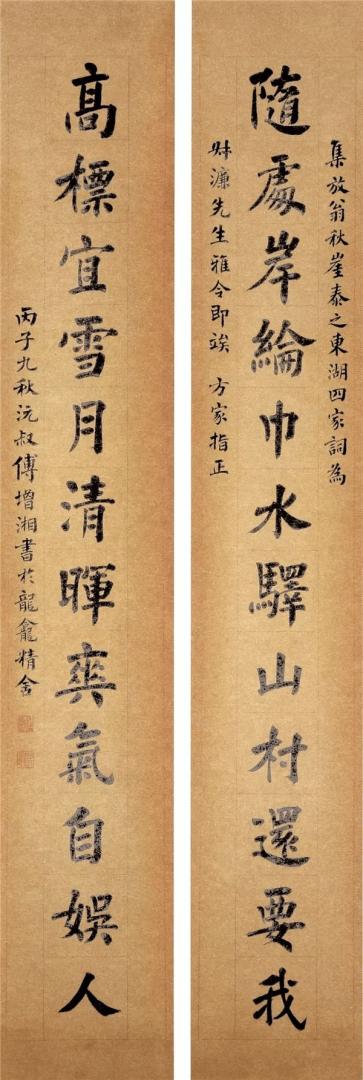 集放翁秋崖泰之東湖四家詞為
隨處岸綸巾水驛山村還要我
叔濂先生雅令即竢 方家指正
高標宜雪月清暉爽氣自娛人
丙子九秋沅叔傅增湘書於龍龕精舍